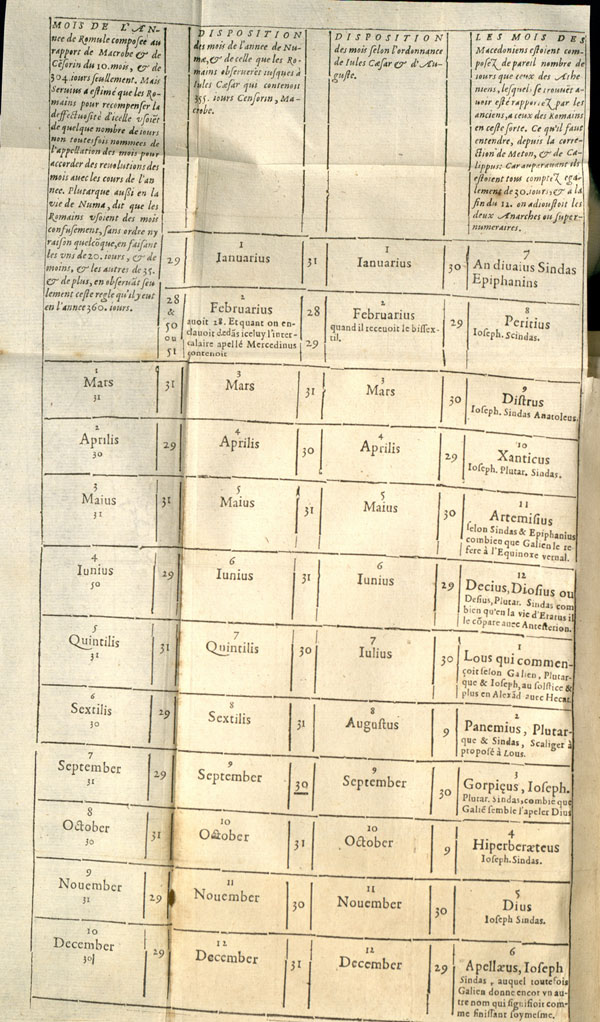 MOIS DE L'AN-
nee de Romule composee au
rapport de Macrobe & de
Cēsorin du 10. mois, & de
304. iours seullement. Mais
Seruius a estimé que les Ro-
mains pour recompenser la
deffectuosité d'icelle vsoiēt
de quelque nombre de iours
non toutesfois nommees de
l'appellation des mois pour
accorder des reuolutions des
mois auec les cours de l'an
nee. Plutarque außi en la
vie de Numa, dit que les
Romains vsoient des mois
confusement, sans ordre ny
raison quelcōque, en faisant
les vns de 20. iours, & de
moins, & les autres de 35.
& de plus, en obseruāt seu
lement ceste regle qu'il y eut
en l'annee 360. iours.
DISPOSITION
des mois de l'annee de Nu-
ma, & de celle que les Ro-
mains obseruerēt iusques à
Iules Cæsar qui contenoit
355. iours Censorin, Ma-
crobe.
DISPOSITION
des mois selon l'ordonnance
de Iules Cæsar & d'Au-
guste.
LES MOIS DES
Macedoniens estoient com-
posez de pareil nombre de
iours que ceux des Athe-
niens, lesquels se trouuēt a-
uoir esté rapportez par les
anciens, a ceux des Romains
en ceste sorte. Ce qu'il faut
entendre, depuis la corre-
ction de Meton, & de Ca-
lippus: Car auparauant ils
estoient tous comptez ega-
lement de 30. iours, & à la
fin du 12. on adioustoit les
deux Anarches ou super-
numeraires.
29
1
Ianuarius
31
1
Ianuarius
30
7
An diuaius Sindas
Epiphanins
28
&
50
ou
51
2
Februarius
auoit 28. Et quant on en-
clauoit dedās iceluy l'inter-
calaire apellé Mercedinus
contenoit
28
29
2
Februarius
quand il receuoit le bissex-
til.
29
8
Peritius
Ioseph. Scindas.
1
Mars
31
31
3
Mars
31
3
Mars
30
9
Distrus
Ioseph. Sindas Anatoleus.
2
Aprilis
30
29
4
Aprilis
30
4
Aprilis
29
10
Xanticus
Ioseph. Plutar. Sindas.
3
Maius
31
31
5
Maius
31
5
Maius
30
11
Artemisius
selon Sindas & Epiphanius
combien que Galien le re
fere à l'Equinoxe vernal.
4
Iunius
30
29
6
Iunius
31
6
Iunius
29
12
Decius, Diosius ou
Desius, Plutar. Sindas com
bien qu'en la vie d'Eratus il
le cōpare auec Antesterion.
5
Quintilis
31
31
7
Quintilis
30
7
Iulius
30
1
Lous qui commen-
çoit selon Galien, Plutar-
que & Ioseph, au solstice &
plus en Alexād auec Hecat.
6
Sextilis
30
29
8
Sextilis
31
8
Augustus
9
2
Panemius, Plutar-
que & Sindas, Scaliger à
proposé à Lous.
7
September
31
29
9
September
30
9
September
30
3
Gorpięus, Ioseph.
Plutar. Sindas, combiē que
Galiē semble l'apeler Dius
8
October
30
31
10
October
31
10
October
9
4
Hiperberæteus
Ioseph. Sindas.
9
Nouember
31
29
11
Nouember
30
11
Nouember
30
5
Dius
Ioseph Sindas.
10
December
30
29
12
December
31
12
December
29
6
Apellæus, Ioseph
Sindas, auquel toutefois
Galien donne encor vn au
tre nom qui signifioit com-
me finissant soymesme.